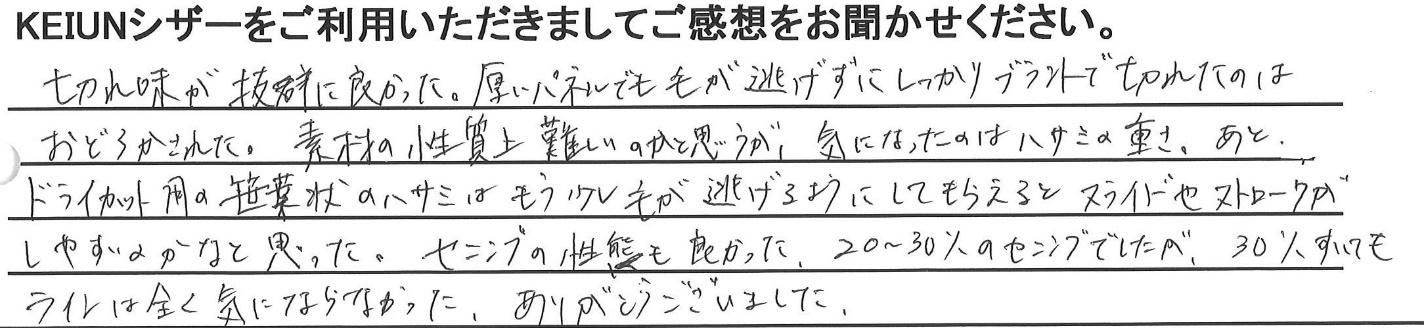 KEIUNシザーをご利用いただきましてご感想をお聞かせください。
切れ味が抜群に良かった。厚いパネルでも毛が逃げずにしっかりブラントで切れたのは
おどろかされた。素材の性質上難しいのかと思うが、気になったのはハサミの重さ。あと、
ドライカット用の笹葉状のハサミはもう少し毛が逃げるようにしてもらえるとスライドやストロークが
しやすいのかなと思った。セニングの性能も良かった、20~30%のセニングでしたが、30%すいても
ラインは全く気にならなかった、ありがとうございました。